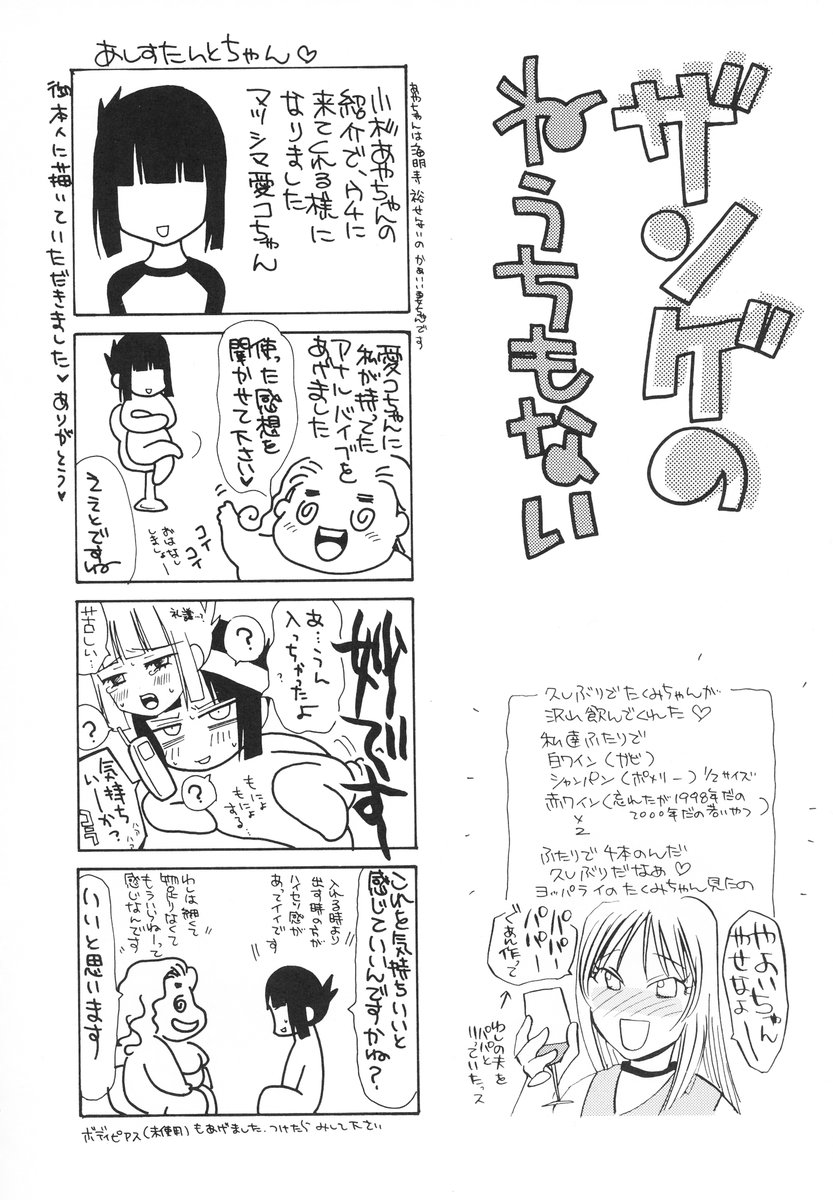 ザンゲの
ねうちもない
久しぶりでたくみちゃんが
沢山飲んでくれた♡
私達ふたりで
白ワイン(ガビ)
シャンパン(ポメリー)1/2サイズ
赤ワイン(忘れたが1998年だの
2000年だの若いやつ)
×2
ふたりで4本のんだ
久しぶりだなぁ♡
ヨッパライのたくみちゃん見たの
やよいちゃん
やせなよ
パパー
パパー
ごあん作って
わしの夫を
パパと
いっていたっス
あしすたんとちゃん♡
小杉あやちゃんの
紹介で、ウチに
来てくれる様に
なりました
マツシマ愛コちゃん
御本人に描いていただきました♥ありがとう♥
愛コちゃんに
私が持ってた
アナルバイブを
あげました
使った感想を
聞かせて下さい♥
コイ
コイ
おはなし
しましょー
ええとですね
変です
あ…うん
入っちゃったよ
?
苦しい…
?
?
もにょ
もにょ
する…
気持ち
いーか?
コラ
ハァ
ハァ
これを気持ちいいと
感じていいんですかね?
入れる時より
出す時の方が
ハイセツ感が
あってイイです
わしは細くて
物足りなくて
もういらねーって
感じなんです
いいと思います
ボディピアス(未使用)もあげました.つけたらみして下さい